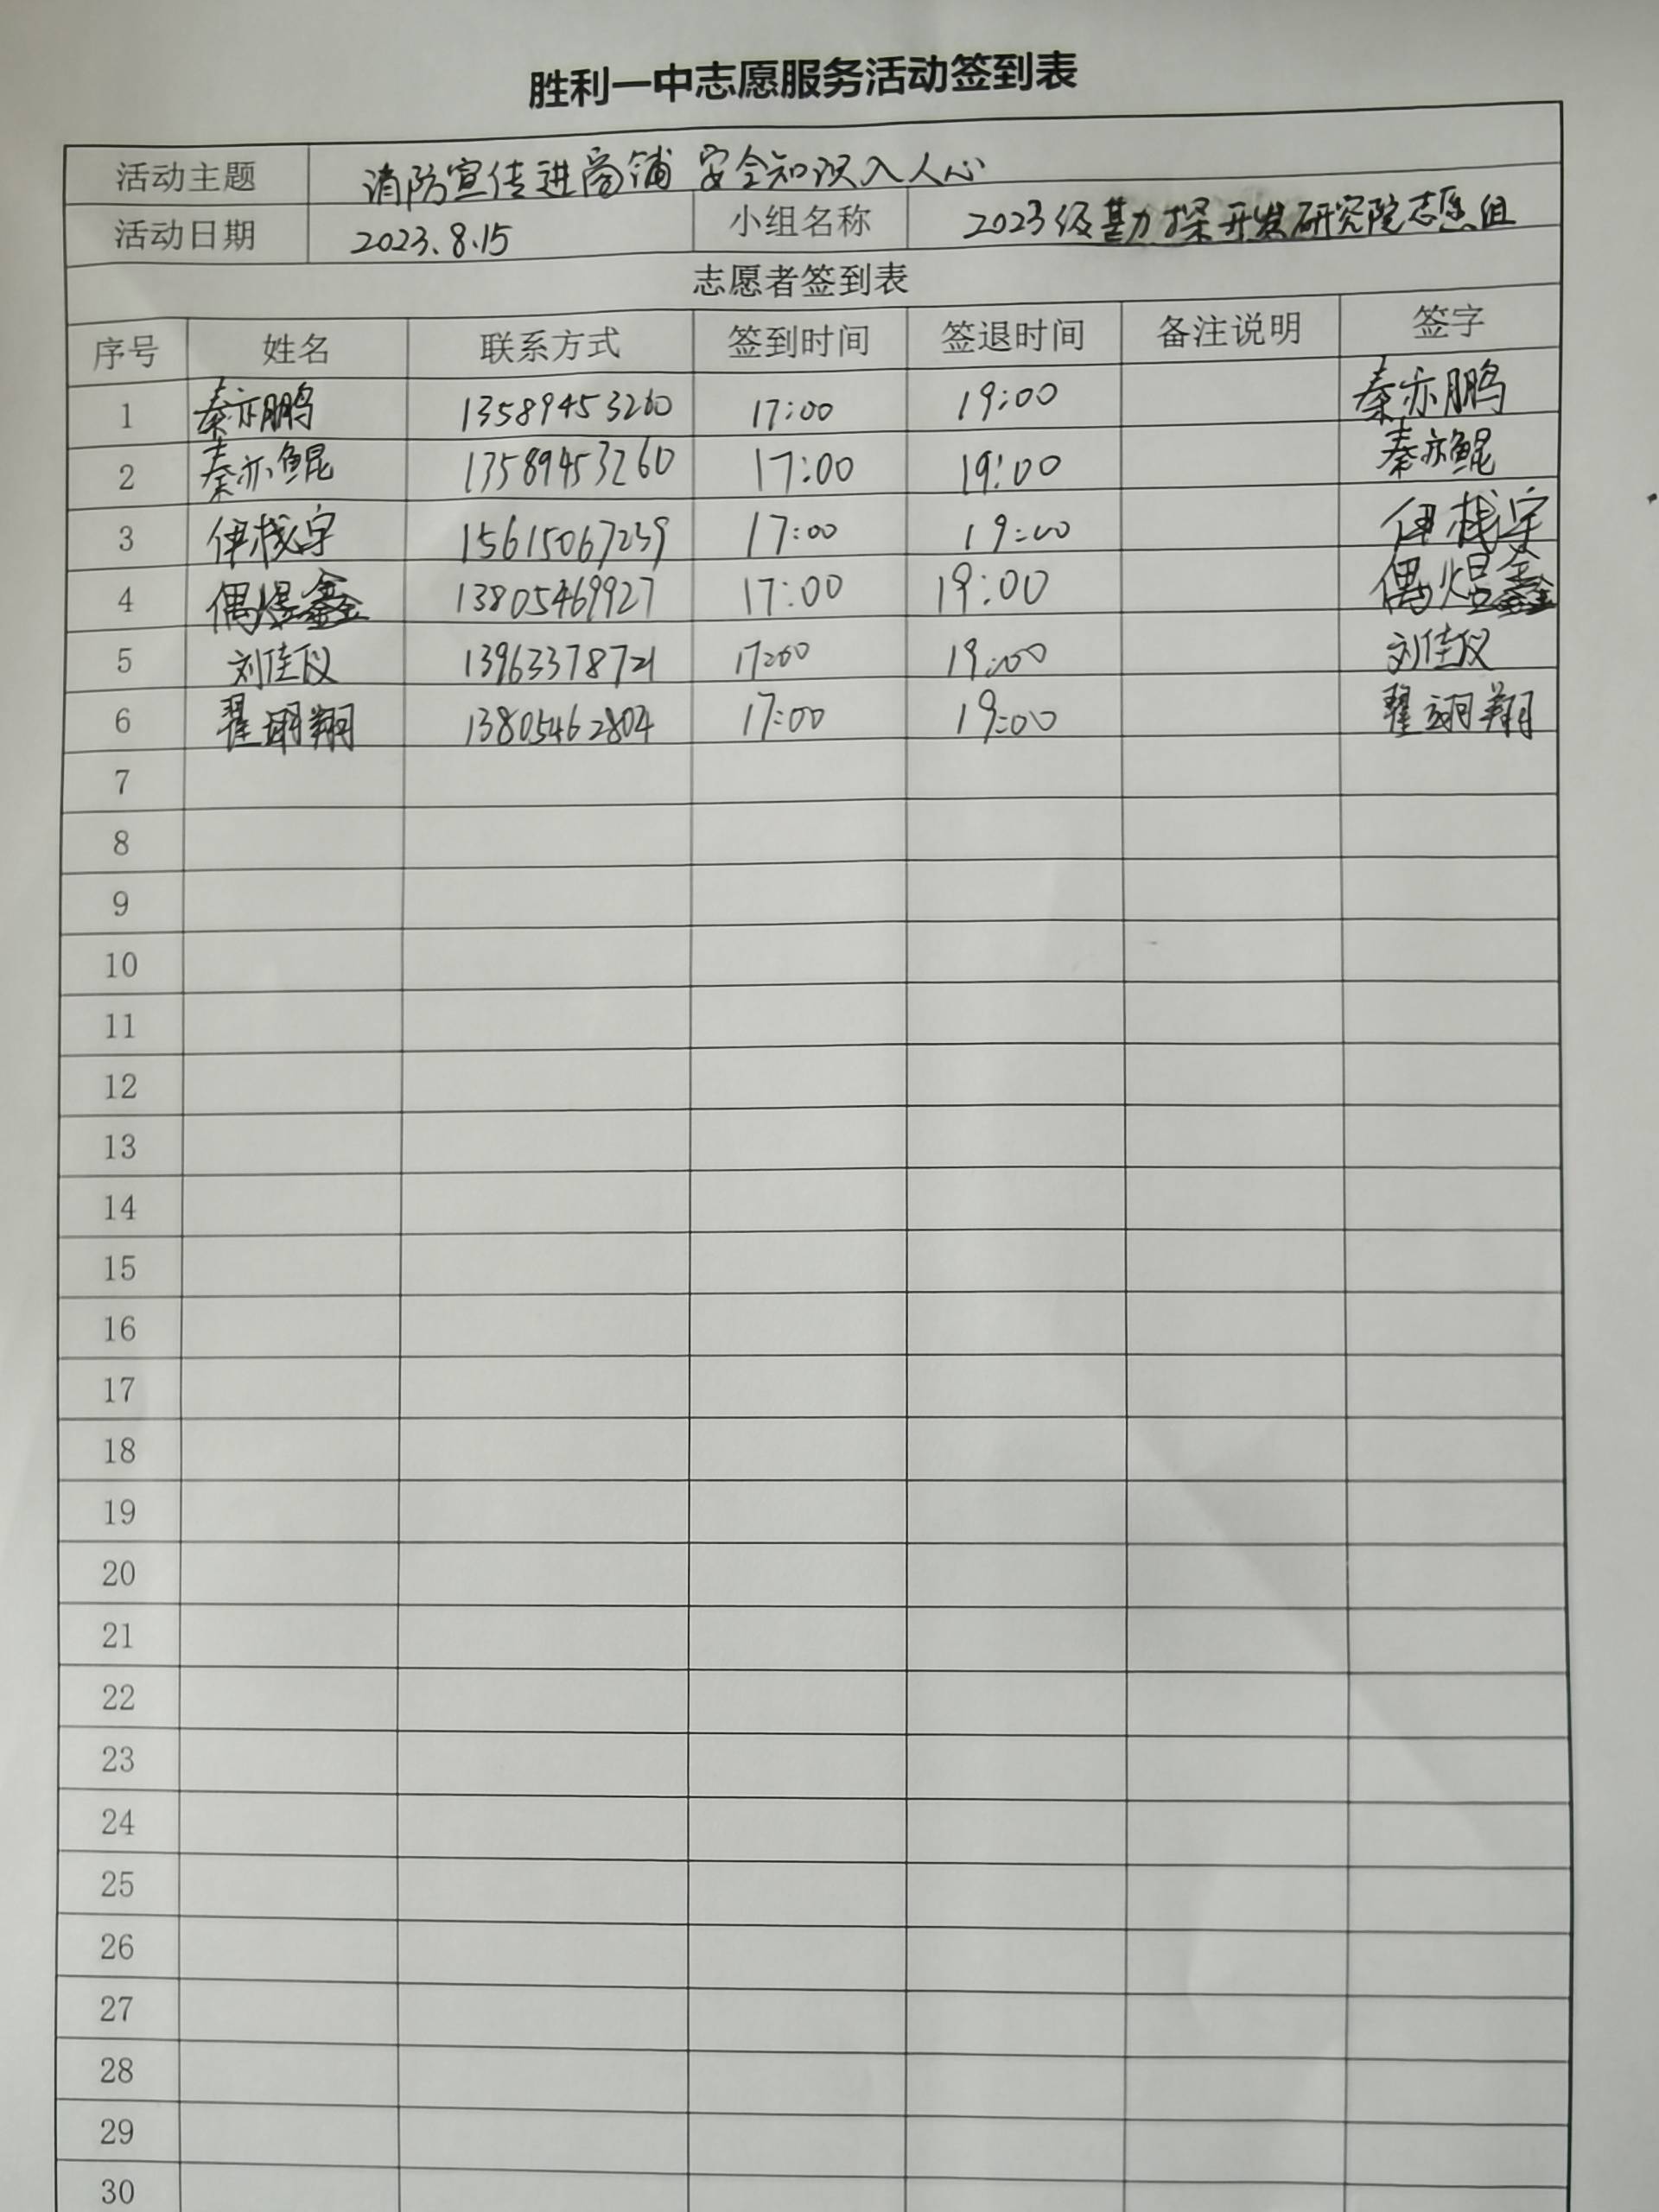 胜利一中志愿服务活动签到表
活动主题 消防宣传进商铺 安全知识入人心
活动日期 2023.8.15 小组名称 2023级勘探开发研究院志愿组
志愿者签到表
序号 姓名 联系方式 签到时间 签退时间 备注说明 签字
1 秦亦鹏 13589453260 17:00 19:00 秦亦鹏
2 秦亦鲲 13589453260 17:00 19:00 秦亦鲲
3 伊栈宇 15615067239 17:00 19:00 伊栈宇
4 偶煜鑫 13805469927 17:00 19:00 偶煜鑫
5 刘佳仪 13963378721 17:00 19:00 刘佳仪
6 翟翊翔 13805462804 17:00 19:00 翟翊翔
7
8
9
10
11
12
13
14
15
16
17
18
19
20
21
22
23
24
25
26
27
28
29
30